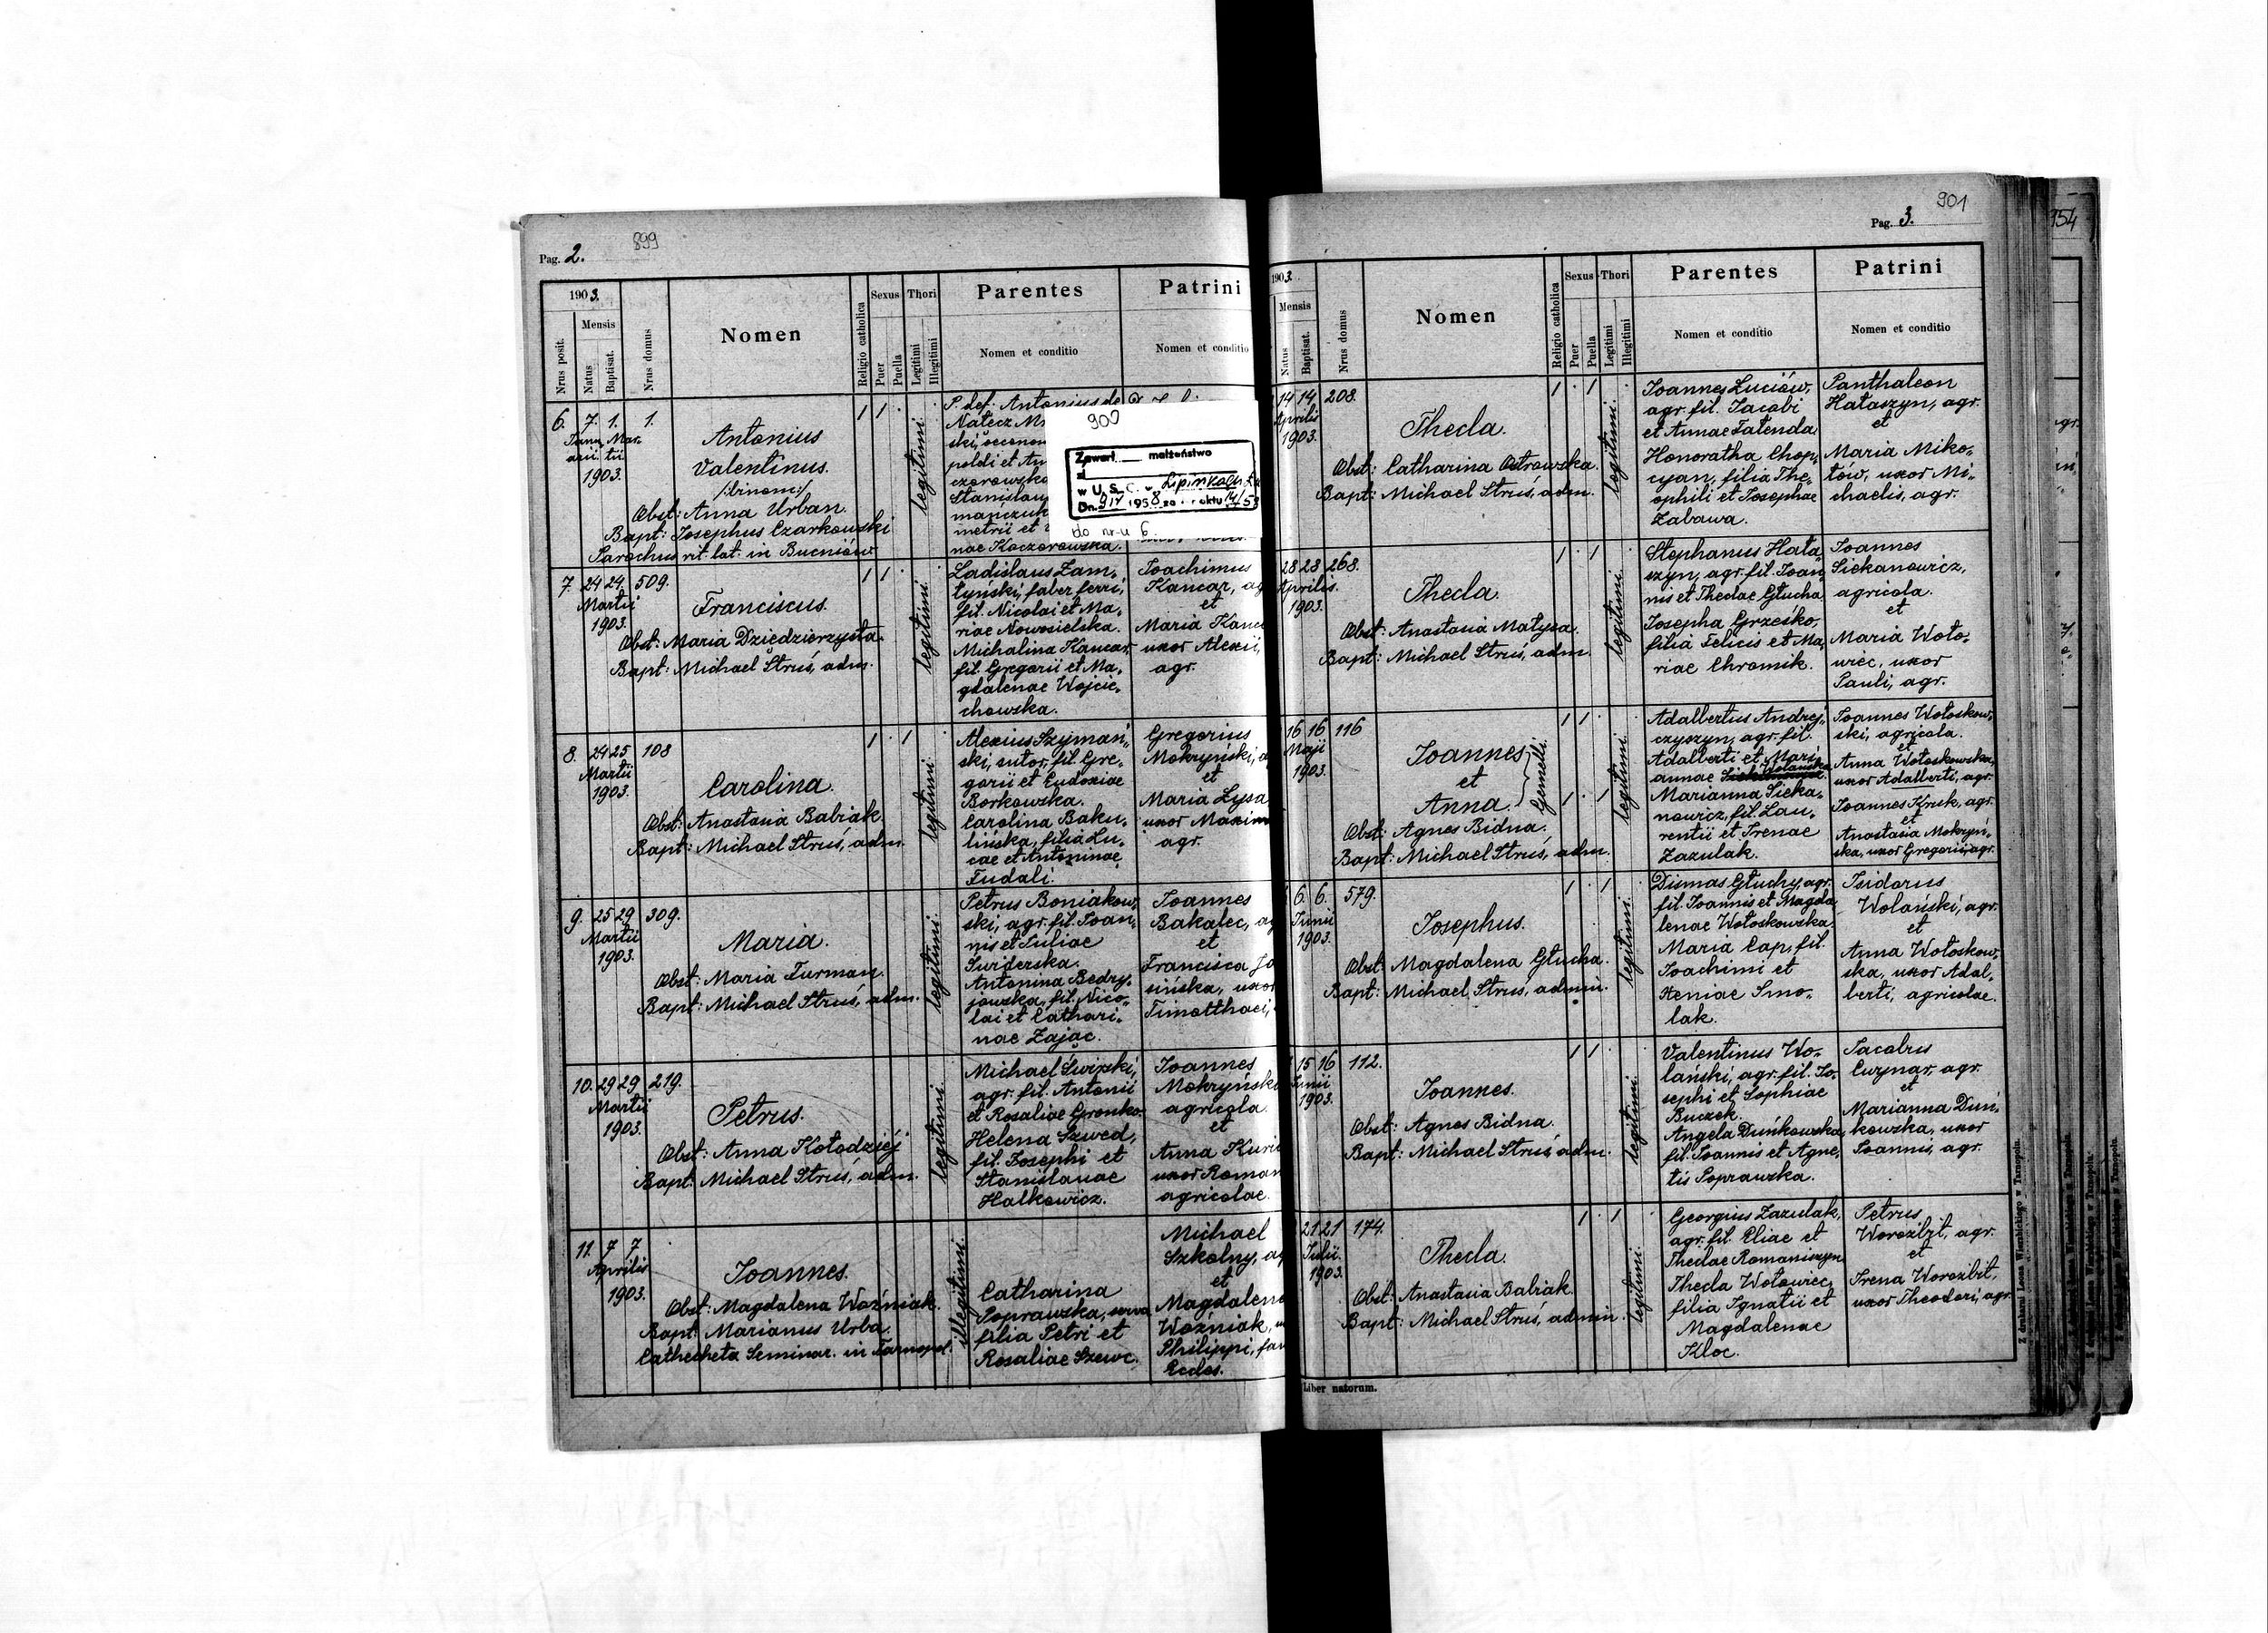 Pag. 2.
899
1903.
Nrus posit.
Mensis
Natus
Baptisat.
Nrus domus
Nomen
Religio catholica
Sexus
Puer
Puella
Thori
Legitimi
Illegitimi
Parentes
Nomen et conditio
Patrini
Nomen et conditio
6. 7. 1. 1.
Janu Mar.
arii tii
1903.
Antonius
Valentinus.
/:binom:/
Obst: Anna Urban.
Bapt: Josephus Czarkowski
Parochus rit. lat. in Bucniów
legitimi
P. def. Antonius de
Natecz
ski, oeconom
poldi et An
czorowska
Stanislau
mańczuk
metrii et
nae Kaczorowska.
900
Zawarł małżeństwo
w U. S. C. w Lipinkach
Dn. 1958 za nr aktu 14/58
do nr-u 6
7. 24 24. 509.
Martii
1903.
Franciscus.
Obst: Maria Dziedzierzysta.
Bapt: Michael Struś, adm.
legitimi
Ladislaus Zam-
tyński, faber ferri,
fil. Nicolai et Ma-
riae Nowosielska.
Michalina Kancar,
fil. Gregorii et Ma-
gdalenae Wojcie-
chowska.
Joachimus
Kancar, ag
et
Maria Kanc
uxor Alexii,
agr.
8. 24 25 108
Martii
1903.
Carolina.
Obst: Anastasia Babiak.
Bapt: Michael Struś, adm.
legitimi
Alexius Szymań-
ski, sutor, fil. Gre-
gorii et Eudoxiae
Borkowska.
Carolina Baku-
lińska, filia Lu-
cae et Antoninae
Fudali.
Gregorius
Mokryński, a
et
Maria Lysa
uxor Maxim
agr.
9. 25 29 309.
Martii
1903.
Maria.
Obst: Maria Furman.
Bapt: Michael Struś, adm.
legitimi
Petrus Boniakow-
ski, agr. fil. Joan-
nis et Juliae
Swiderska.
Antonina Bedry-
jowska, fil. Nico-
lai et Cathari-
nae Zając.
Joannes
Bakalec, ag
et
Francisca Ja
sińska, uxor
Timotthaei,
10. 29 29 219.
Martii
1903.
Petrus.
Obst: Anna Kołodziéj
Bapt: Michael Struś, adm.
legitimi
Michael Świrski,
agr. fil. Antonii
et Rosaliae Gronko.
Helena Szwed,
fil. Josephi et
Stanislauae
Halkowicz.
Joannes
Mokryński
agricola.
et
Anna Kuri
uxor Roman
agricolae.
11. 7 7
Aprilis
1903.
Joannes.
Obst: Magdalena Woźniak.
Bapt: Marianus Urba.
Cathecheta Seminar. in Tarnopol.
illegitimi
Catharina
Poprawska, serva
filia Petri et
Rosaliae Szewc.
Michael
Szkolny, ag
et
Magdalena
Woźniak, u
Philippi, fam
Eccles.
Pag. 3.
901
1903.
Mensis
Natus
Baptisat.
Nrus domus
Nomen
Religio catholica
Sexus
Puer
Puella
Thori
Legitimi
Illegitimi
Parentes
Nomen et conditio
Patrini
Nomen et conditio
14 14 208.
Aprilis
1903.
Thecla.
Obst: Catharina Ostrowska.
Bapt: Michael Struś, adm.
legitimi
Joannes Luciów,
agr. fil. Jacobi
et Annae Tatenda
Honoratha Chop-
cyan, filia The-
ophili et Josephae
Zabawa.
Panthaleon
Hałaszyn, agr.
et
Maria Miko-
tów, uxor Mi-
chaelis, agr.
28 28 268.
Aprilis.
1903.
Thecla.
Obst: Anastasia Matysa.
Bapt: Michael Struś, adm.
legitimi
Stephanus Hała-
szyn, agr. fil. Joan-
nis et Theclae Głucha
Josepha Grzesko,
filia Felicis et Ma-
riae Chromik.
Joannes
Siekanowicz,
agricola.
et
Maria Woło-
wiec, uxor
Pauli, agr.
16 16 116
Maji
1903.
Joannes
et
Anna.
Gemelli.
Obst: Agnes Bidna.
Bapt: Michael Struś, adm.
legitimi
Adalbertus Andrej-
czyszyn, agr. fil.
Adalberti et Mari-
annae Wolańska
Marianna Sieka-
nowicz, fil. Lau-
rentii et Irenae
Zazulak.
Joannes Wołoskow-
ski, agricola.
et
Anna Wołoskowska,
uxor Adalberti, agr.
Joannes Kruk, agr.
et
Anastasia Mokryń-
ska, uxor Gregorii, agr.
6. 6. 579.
Junii
1903.
Josephus.
Obst: Magdalena Głucha.
Bapt: Michael Struś, admin.
legitimi
Dismas Głuchy, agr.
fil. Joannis et Magda-
lenae Wołoskowska.
Maria Cap, fil.
Joachimi et
Xeniae Smo-
lak.
Isidorus
Wolański, agr.
et
Anna Wołoskow-
ska, uxor Adal-
berti, agricolae.
15 16 112.
Junii
1903.
Joannes.
Obst: Agnes Bidna.
Bapt: Michael Struś, adm.
legitimi
Valentinus Wo-
lański, agr. fil. Jo-
sephi et Sophiae
Buczek.
Angela Duńkowska,
fil. Joannis et Agne-
tis Poprawska.
Jacobus
Cwynar, agr.
et
Marianna Duń-
kowska, uxor
Joannis, agr.
21 21 174.
Julii
1903.
Thecla.
Obst: Anastasia Babiak.
Bapt: Michael Struś, admin.
legitimi
Georgius Zazulak,
agr. fil. Eliae et
Theclae Romaniszyn
Thecla Wołowiec,
filia Ignatii et
Magdalenae
Kloc.
Petrus
Worozbit, agr.
et
Irena Worozbit,
uxor Theodori, agr.
Liber natorum.
Z drukarni Leona Wierzbickiego w Tarnopolu.
954